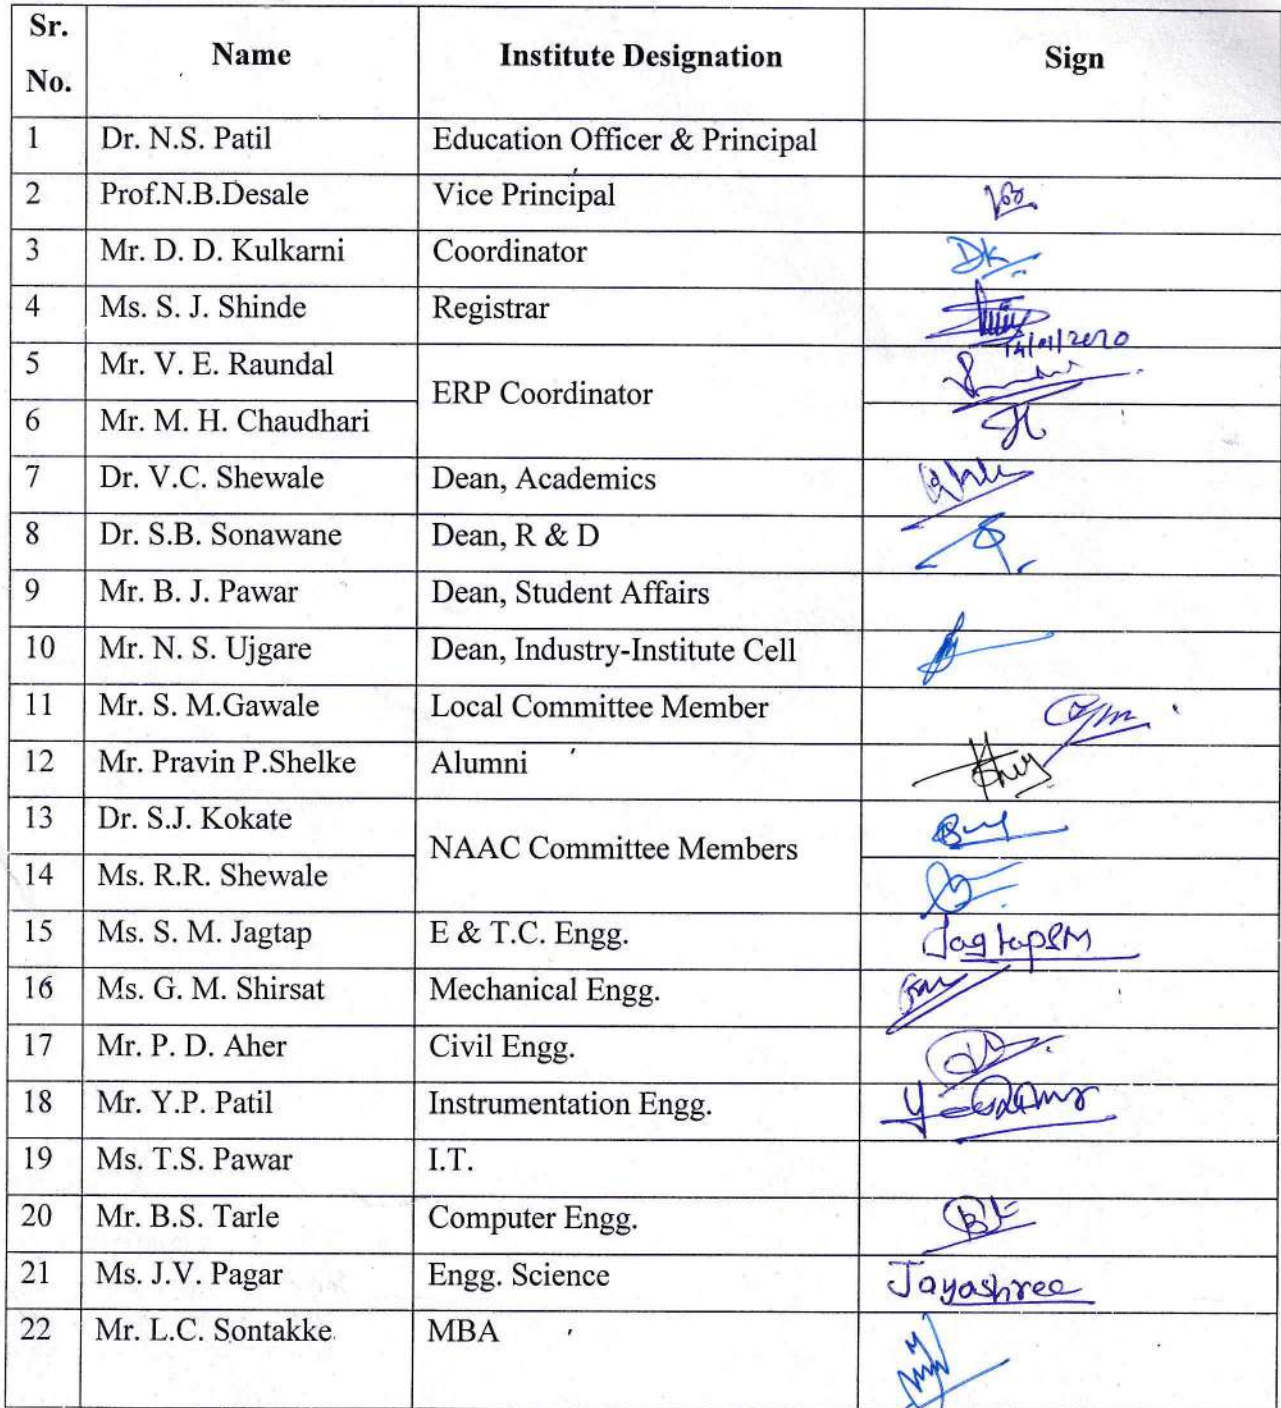 Sr.
No.
Name
Institute Designation
Sign
1 Dr. N.S. Patil Education Officer & Principal
2 Prof.N.B.Desale Vice Principal
3 Mr. D. D. Kulkarni Coordinator DK
4 Ms. S. J. Shinde Registrar
5 Mr. V. E. Raundal ERP Coordinator
6 Mr. M. H. Chaudhari
7 Dr. V.C. Shewale Dean, Academics
8 Dr. S.B. Sonawane Dean, R & D
9 Mr. B. J. Pawar Dean, Student Affairs
10 Mr. N. S. Ujgare Dean, Industry-Institute Cell
11 Mr. S. M.Gawale Local Committee Member
12 Mr. Pravin P.Shelke Alumni
13 Dr. S.J. Kokate NAAC Committee Members
14 Ms. R.R. Shewale
15 Ms. S. M. Jagtap E & T.C. Engg. JagtapSM
16 Ms. G. M. Shirsat Mechanical Engg.
17 Mr. P. D. Aher Civil Engg.
18 Mr. Y.P. Patil Instrumentation Engg.
19 Ms. T.S. Pawar I.T.
20 Mr. B.S. Tarle Computer Engg.
21 Ms. J.V. Pagar Engg. Science Jayashree
22 Mr. L.C. Sontakke MBA